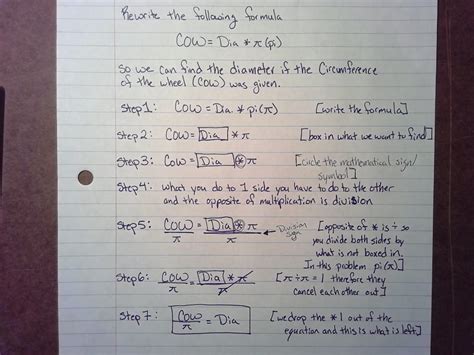 Rewrite the following formula
COW = Dia * π (pi)
So we can find the diameter if the Circumference
of the wheel (COW) was given.
Step 1: COW = Dia * pi(π) [write the formula]
Step 2: COW = Dia * π [box in what we want to find]
Step 3: COW = Dia * π [circle the mathematical sign/
symbol]
Step 4: what you do to 1 side you have to do to the other
and the opposite of multiplication is division
Step 5: COW/π = Dia * π/π ← Division sign [opposite of * is ÷ so
you divide both sides by
what is not boxed in.
In this problem pi(π)]
Step 6: COW/π = Dia * π/π [π ÷ π = 1 therefore they
cancel each other out]
Step 7: COW/π = Dia [we drop the * 1 out of the
equation and this is what is left]